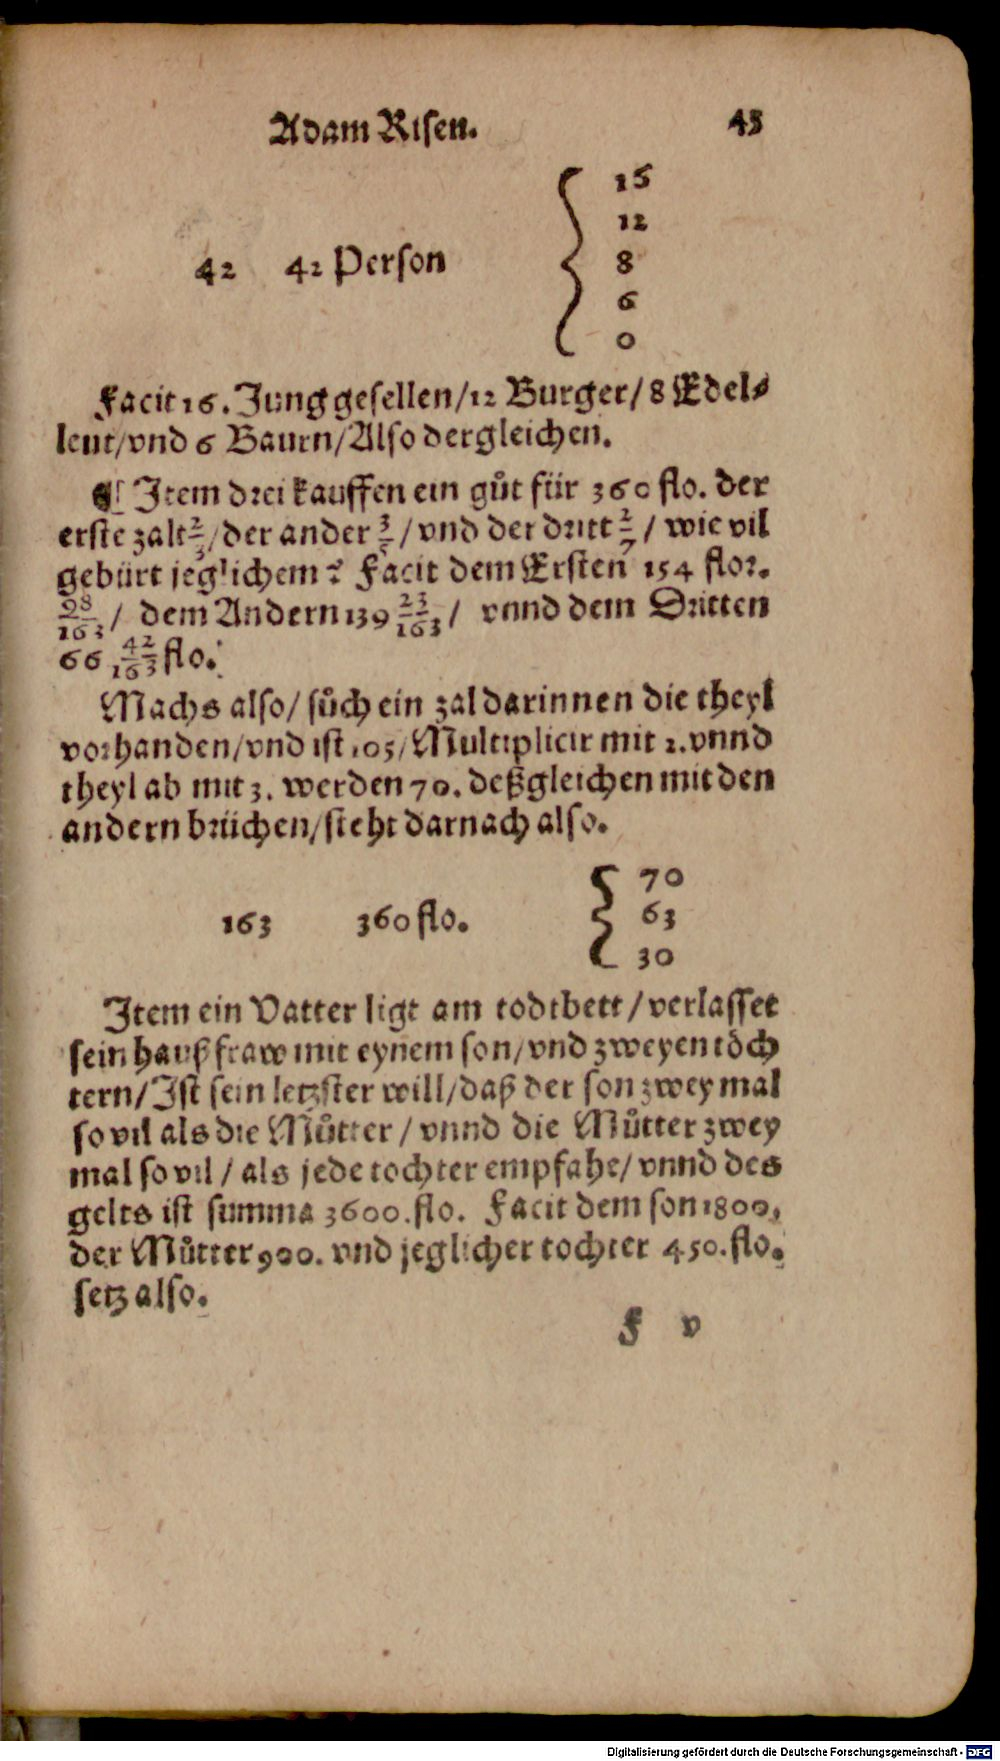 Adam Risen. 45
16
12
42 42 Person 8
6
0
Facit 16. Junggesellen/12 Burger/8 Edel⸗
leut/vnd 6 Baurn/Also dergleichen.
¶ Item drei kauffen ein gůt für 360 flo. der
erste zalt 2/3/der ander 3/5/vnd der dritt 2/7/ wie vil
gebürt jeglichem? Facit dem Ersten 154 flor.
98/163/ dem Andern 139 23/163/ vnnd dem Dritten
66 42/163 flo.
Machs also/ sůch ein zal darinnen die theyl
vorhanden/vnd ist 105/Multiplicir mit 2. vnnd
theyl ab mit 3. werden 70. deßgleichen mit den
andern brüchen/sieht darnach also.
70
163 360 flo. 63
30
Item ein Vatter ligt am todtbett/verlasset
sein haußfraw mit eynem son/vnd zweyen töch
tern/Ist sein letzster will/daß der son zwey mal
so vil als die Můtter/vnnd die Můtter zwey
mal so vil/als jede tochter empfahe/vnnd des
gelts ist summa 3600.flo. Facit dem son 1800,
der Můtter 900. vnd jeglicher tochter 450.flo.
setz also.
F v
Digitalisierung gefördert durch die Deutsche Forschungsgemeinschaft - DFG